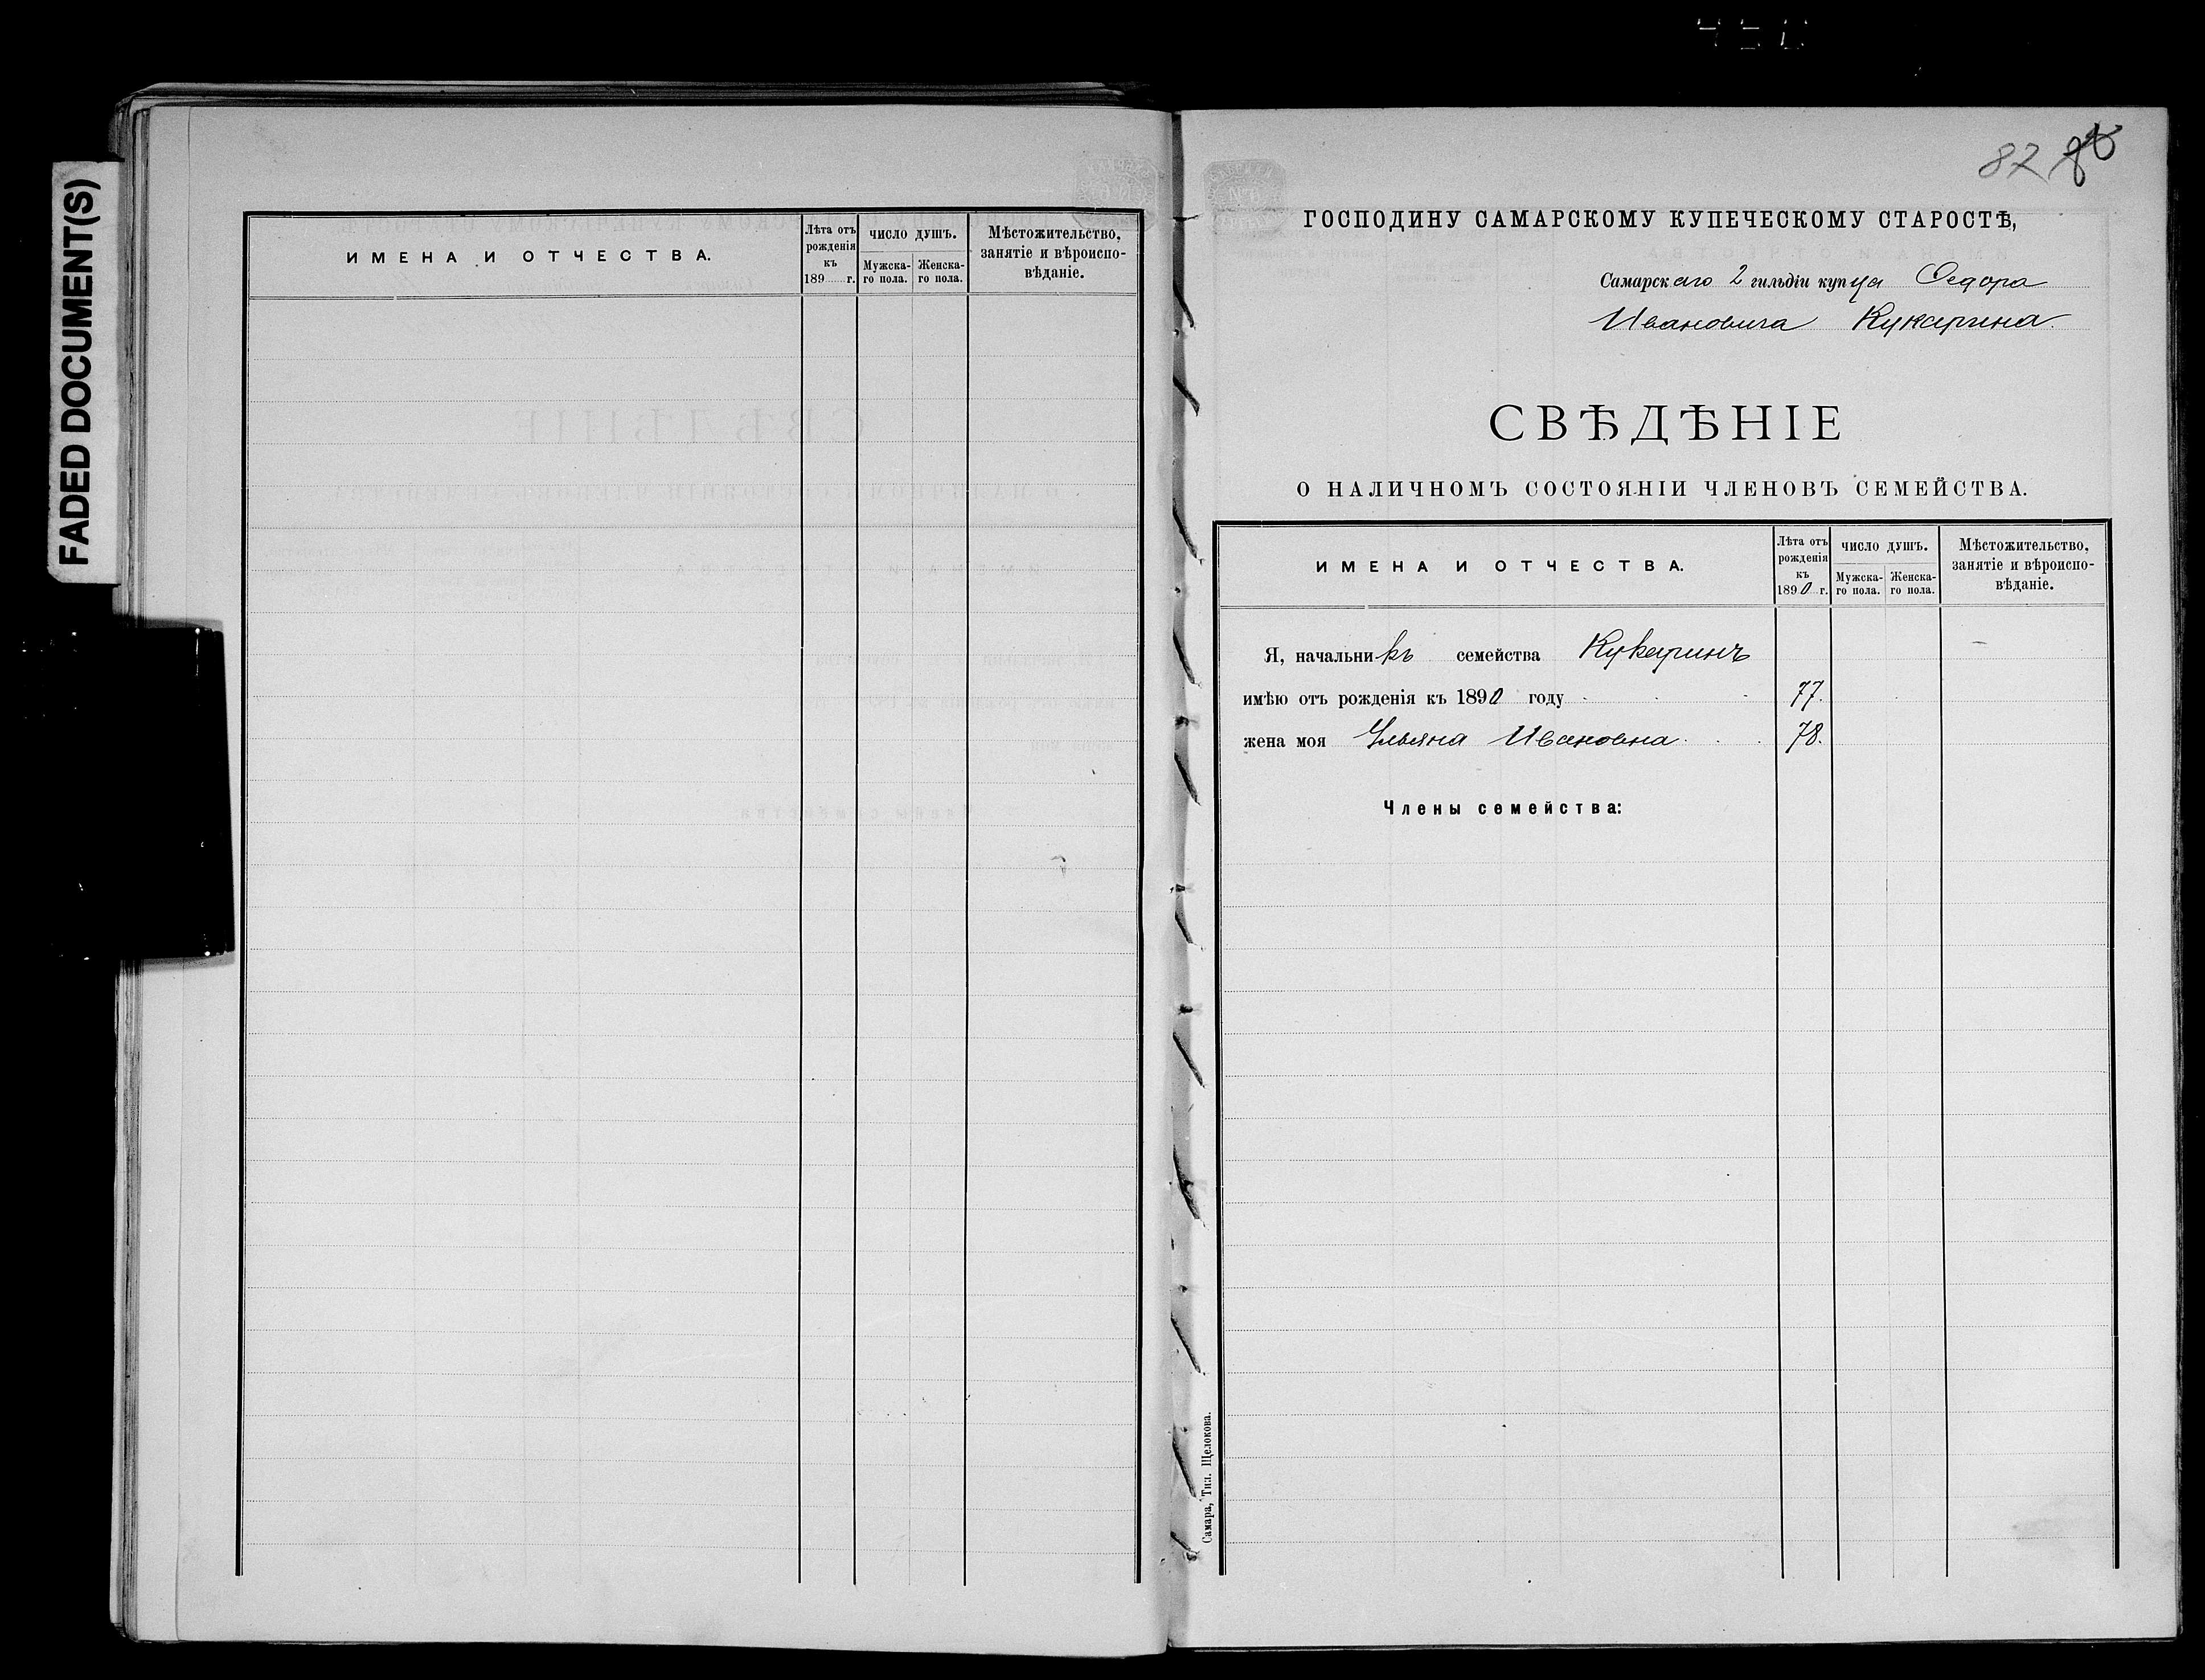 FADED DOCUMENT(S)
ИМЕНА И ОТЧЕСТВА.
Лѣта отъ
рожденія
къ
189 г.
ЧИСЛО ДУШЪ.
Мужска-
го пола.
Женска-
го пола.
Мѣстожительство,
занятіе и вѣроиспо-
вѣданіе.
82
ГОСПОДИНУ САМАРСКОМУ КУПЕЧЕСКОМУ СТАРОСТѢ,
Самарскаго 2 гильдіи купца Федора
Ивановича Кукарина.
СВѢДѢНІЕ
О НАЛИЧНОМЪ СОСТОЯНІИ ЧЛЕНОВЪ СЕМЕЙСТВА.
ИМЕНА И ОТЧЕСТВА.
Лѣта отъ
рожденія
къ
1890 г.
ЧИСЛО ДУШЪ.
Мужска-
го пола.
Женска-
го пола.
Мѣстожительство,
занятіе и вѣроиспо-
вѣданіе.
Я, начальникъ семейства Кукаринъ
имѣю отъ рожденія къ 1890 году 77.
жена моя Ульяна Ивановна 78.
Члены семейства:
Самара, Тип. Щелокова.